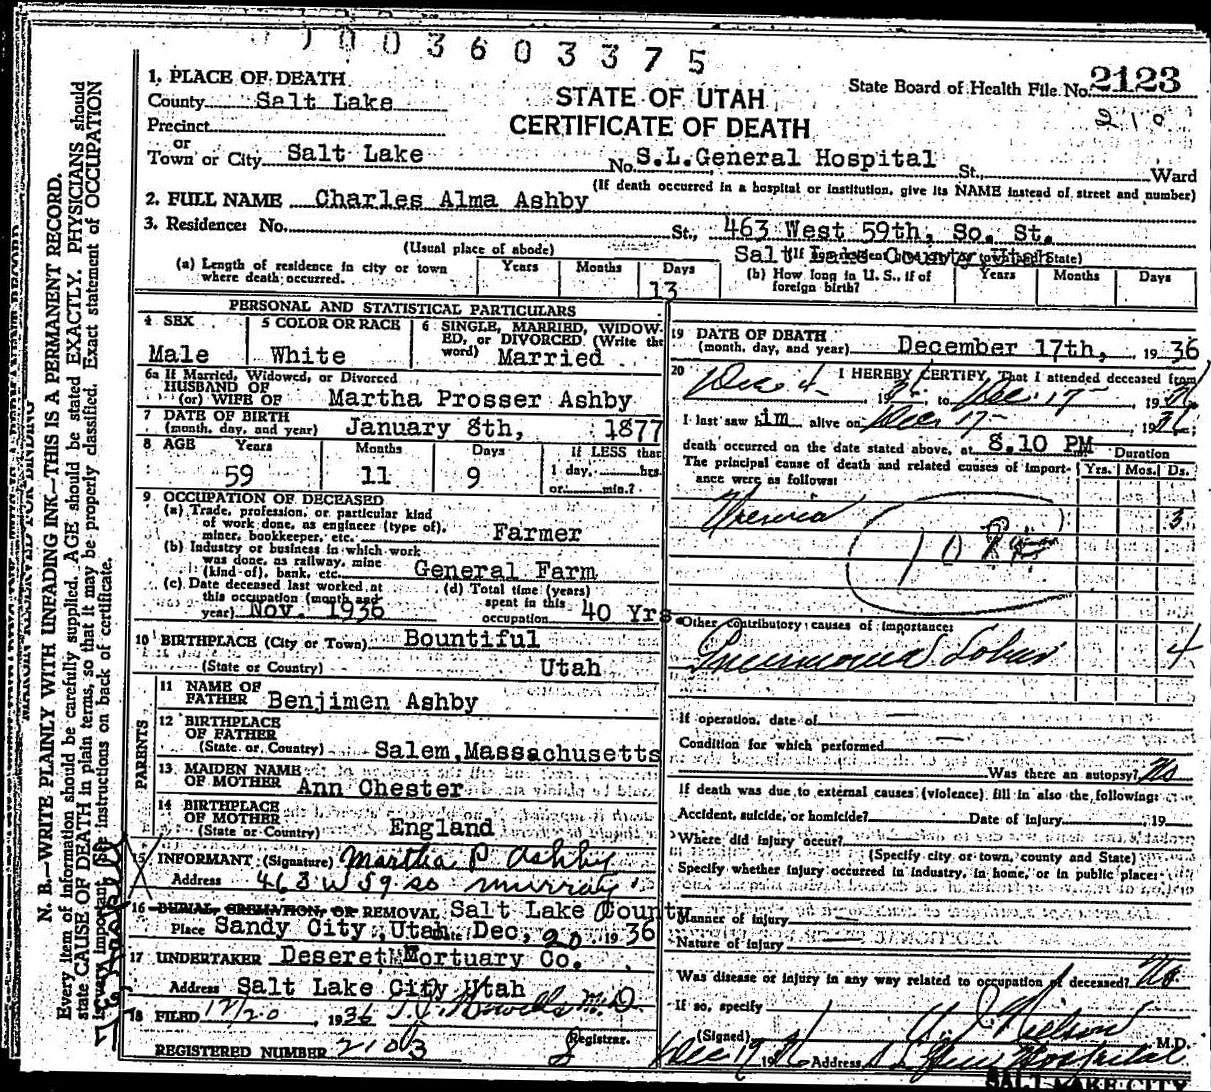 0003603375
1. PLACE OF DEATH
County Salt Lake
STATE OF UTAH
State Board of Health File No. 2123
Precinct
CERTIFICATE OF DEATH
210
or
Town or City Salt Lake No. S.L. General Hospital St., Ward
(If death occurred in a hospital or institution, give its NAME instead of street and number)
2. FULL NAME Charles Alma Ashby
3. Residence: No. St., 463 West 59th, So. St.
(Usual place of abode) Salt Lake County Utah
(a) Length of residence in city or town where death occurred. Years Months Days 13
(b) How long in U. S., if of foreign birth? Years Months Days
PERSONAL AND STATISTICAL PARTICULARS
4 SEX Male
5 COLOR OR RACE White
6 SINGLE, MARRIED, WIDOWED, or DIVORCED (Write the word) Married
6a If Married, Widowed, or Divorced
HUSBAND OF
(or) WIFE OF Martha Prosser Ashby
7 DATE OF BIRTH
(month, day, and year) January 8th, 1877
8 AGE Years Months Days If LESS than
59 11 9 1 day, hrs.
or min.?
9 OCCUPATION OF DECEASED
(a) Trade, profession, or particular kind
of work done, as engineer (type of),
miner, bookkeeper, etc. Farmer
(b) Industry or business in which work
was done, as railway, mine
(kind of), bank, etc. General Farm
(c) Date deceased last worked at
this occupation (month and
year) Nov. 1936
(d) Total time (years)
spent in this
occupation 40 Yrs.
10 BIRTHPLACE (City or Town) Bountiful
(State or Country) Utah
PARENTS
11 NAME OF
FATHER Benjimen Ashby
12 BIRTHPLACE
OF FATHER
(State or Country) Salem, Massachusetts
13 MAIDEN NAME
OF MOTHER Ann Chester
14 BIRTHPLACE
OF MOTHER
(State or Country) England
15 INFORMANT (Signature) Martha P Ashby
Address 463 W 59 so murray
16 BURIAL, CREMATION, OR REMOVAL Salt Lake County
Place Sandy City, Utah Date Dec, 20 1936
17 UNDERTAKER Deseret Mortuary Co.
Address Salt Lake City Utah
18 FILED 12/20, 1936 M.D.
Registrar.
REGISTERED NUMBER 2103
19 DATE OF DEATH
(month, day, and year) December 17th, 1936
20 I HEREBY CERTIFY, That I attended deceased from
Dec 4, 1936, to Dec 17, 1936
I last saw him alive on Dec 17, 1936;
death occurred on the date stated above, at 8.10 PM
Duration
The principal cause of death and related causes of importance were as follows: Yrs. Mos. Ds.
Uremia 3
108
Other contributory causes of importance:
Pneumonia Lobar 4
If operation, date of —
Condition for which performed —
Was there an autopsy? No
If death was due to external causes (violence) fill in also the following:
Accident, suicide, or homicide? Date of injury 19
Where did injury occur?
(Specify city or town, county and State)
Specify whether injury occurred in industry, in home, or in public place:
Manner of injury
Nature of injury
Was disease or injury in any way related to occupation of deceased? No
If so, specify
(Signed) Nielson, M.D.
Dec 19 1936 Address S L Gen Hospital
SALT LAKE CITY
N. B.—WRITE PLAINLY WITH UNFADING INK—THIS IS A PERMANENT RECORD.
Every item of information should be carefully supplied. AGE should be stated EXACTLY. PHYSICIANS should
state CAUSE OF DEATH in plain terms, so that it may be properly classified. Exact statement of OCCUPATION
is very important. See instructions on back of certificate.